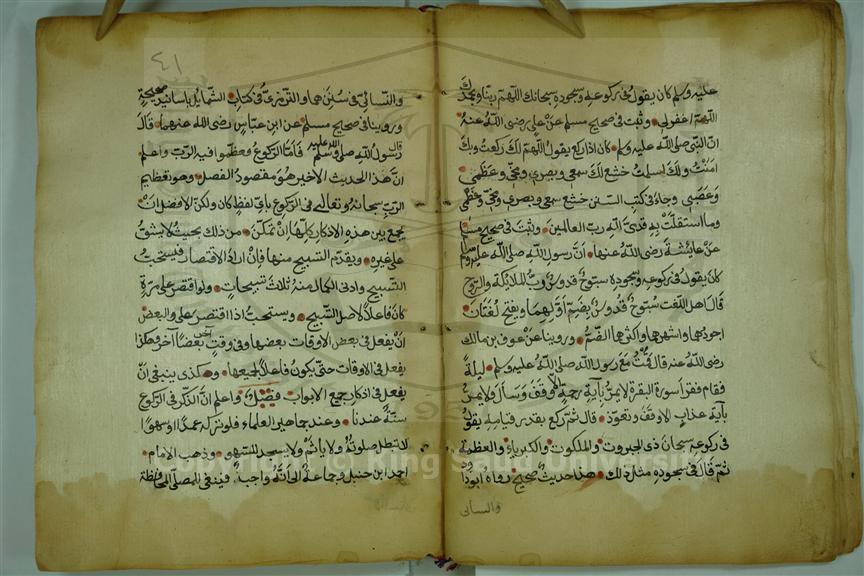 عليه وسلم كان يقول في ركوعه وسجوده سبحانك اللهم ربنا وبحمدك
اللهم اغفر لي وثبت في صحيح مسلم عن علي رضى الله عنه
ان النبي صلى الله عليه وسلم كان اذا ركع يقول اللهم لك ركعت وبك
امنت ولك اسلمت خشع لك سمعي وبصري ومخي وعظمي
وعصبي وجاء في كتب السنن خشع سمعي وبصري ومخي وعظمي
وما استقلت به قدمي لله رب العالمين وثبت في صحيح مسلم
عن عائشة رضى الله عنها ان رسول الله صلى الله عليه وسلم
كان يقول في ركوعه وسجوده سبوح قدوس رب الملائكة والروح
قال اهل اللغة سبوح قدوس بضم اولهما وبفتح لغتان
اجودهما واشهرهما واكثرهما الضم وروينا عن عوف بن مالك
رضى الله عنه قال قمت مع رسول الله صلى الله عليه وسلم ليلة
فقام فقرا سورة البقرة لا يمر بآية رحمة الا وقف وسأل ولا يمر
بآية عذاب الا وقف وتعوذ قال ثم ركع بقدر قيامه يقول
في ركوعه سبحان ذي الجبروت والملكوت والكبرياء والعظمة
ثم قال في سجوده مثل ذلك هذا حديث صحيح رواه ابو داود
والنسائي
٤١
والنسائي في سننهما والترمذي في كتاب الشمائل باسانيد صحيحة
وروينا في صحيح مسلم عن ابن عباس رضى الله عنهما قال
قال رسول الله صلى الله عليه وسلم فاما الركوع فعظموا فيه الرب واعلم
ان هذا الحديث الاخير هو مقصود الفصل وهو تعظيم
الرب سبحانه وتعالى في الركوع باي لفظ كان ولكن الافضل ان
يجمع بين هذه الاذكار كلها ان تمكن من ذلك بحيث لا يشق
على غيره ويقدم التسبيح منها فان اراد الاقتصار فيستحب
التسبيح وادنى الكمال منه ثلاث تسبيحات ولو اقتصر على مرة
كان فاعلا لاصل التسبيح ويستحب اذا اقتصر على البعض
ان يفعل في بعض الاوقات بعضها وفي وقت اخر بعضا آخر وهكذا
يفعل في الاوقات حتى يكون فاعلا لجميعها وهكذى ينبغي ان
يفعل في اذكار جميع الابواب فصل واعلم ان الذكر في الركوع
سنة عندنا وعند جماهير العلماء فلو تركه عمدا او سهوا
لا تبطل صلوته ولا ياثم ولا يسجد للسهو وذهب الامام
احمد ابن حنبل وجماعة الى انه واجب فينبغي للمصلي المحافظة